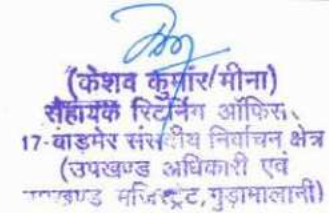 (केशव कुमार मीना)
सहायक रिटर्निंग ऑफिस
17-बाड़मेर संसदीय निर्वाचन क्षेत्र
(उपखण्ड अधिकारी एवं
उपखण्ड मजिस्ट्रेट,गुड़ामालानी)